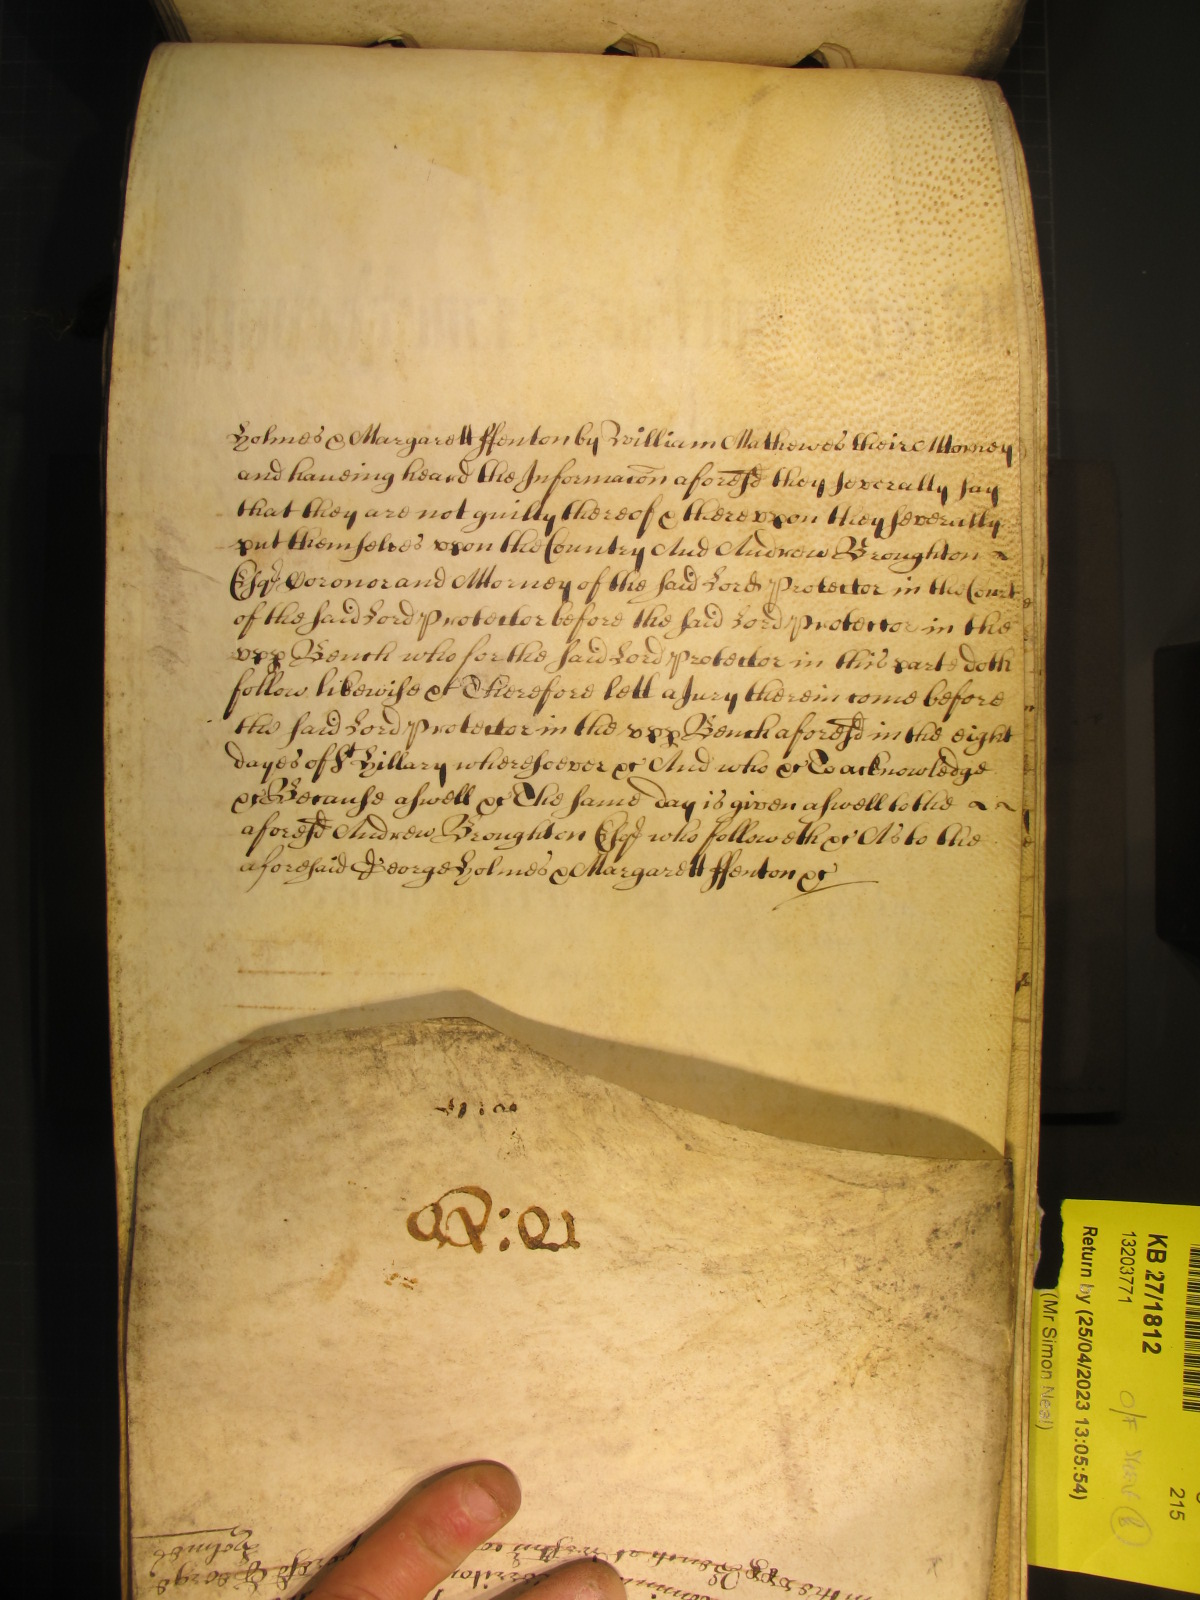 Holmes & Margarett ffenton by William Mathewes their Attorney
and haueing heard the Informacōn aforesd they seuerally say
that they are not guilty thereof & therevpon they seuerally
put themselves vpon the Country And Andrew Broughton
Esqr Coronor and Attorney of the said Lord Protector in the Court
of the said Lord Protector before the said Lord Protector in the
vpp Bench who for the said Lord Protector in this parte doth
follow likewise &c Therefore lett a Jury therein come before
the said Lord Protector in the vpp Bench aforesd in the eight
dayes of St Hillary wheresoever &c And who &c To acknowledge
&c Because aswell &c The same day is given aswell to the
aforesd Andrew Broughton Esqr who followeth &c As to the
aforesaid George Holmes & Margarett ffenton &c
KB 27/1812
13203771
Return by (25/04/2023 13:05:54)
(Mr Simon Neal)
215
George
Holmes